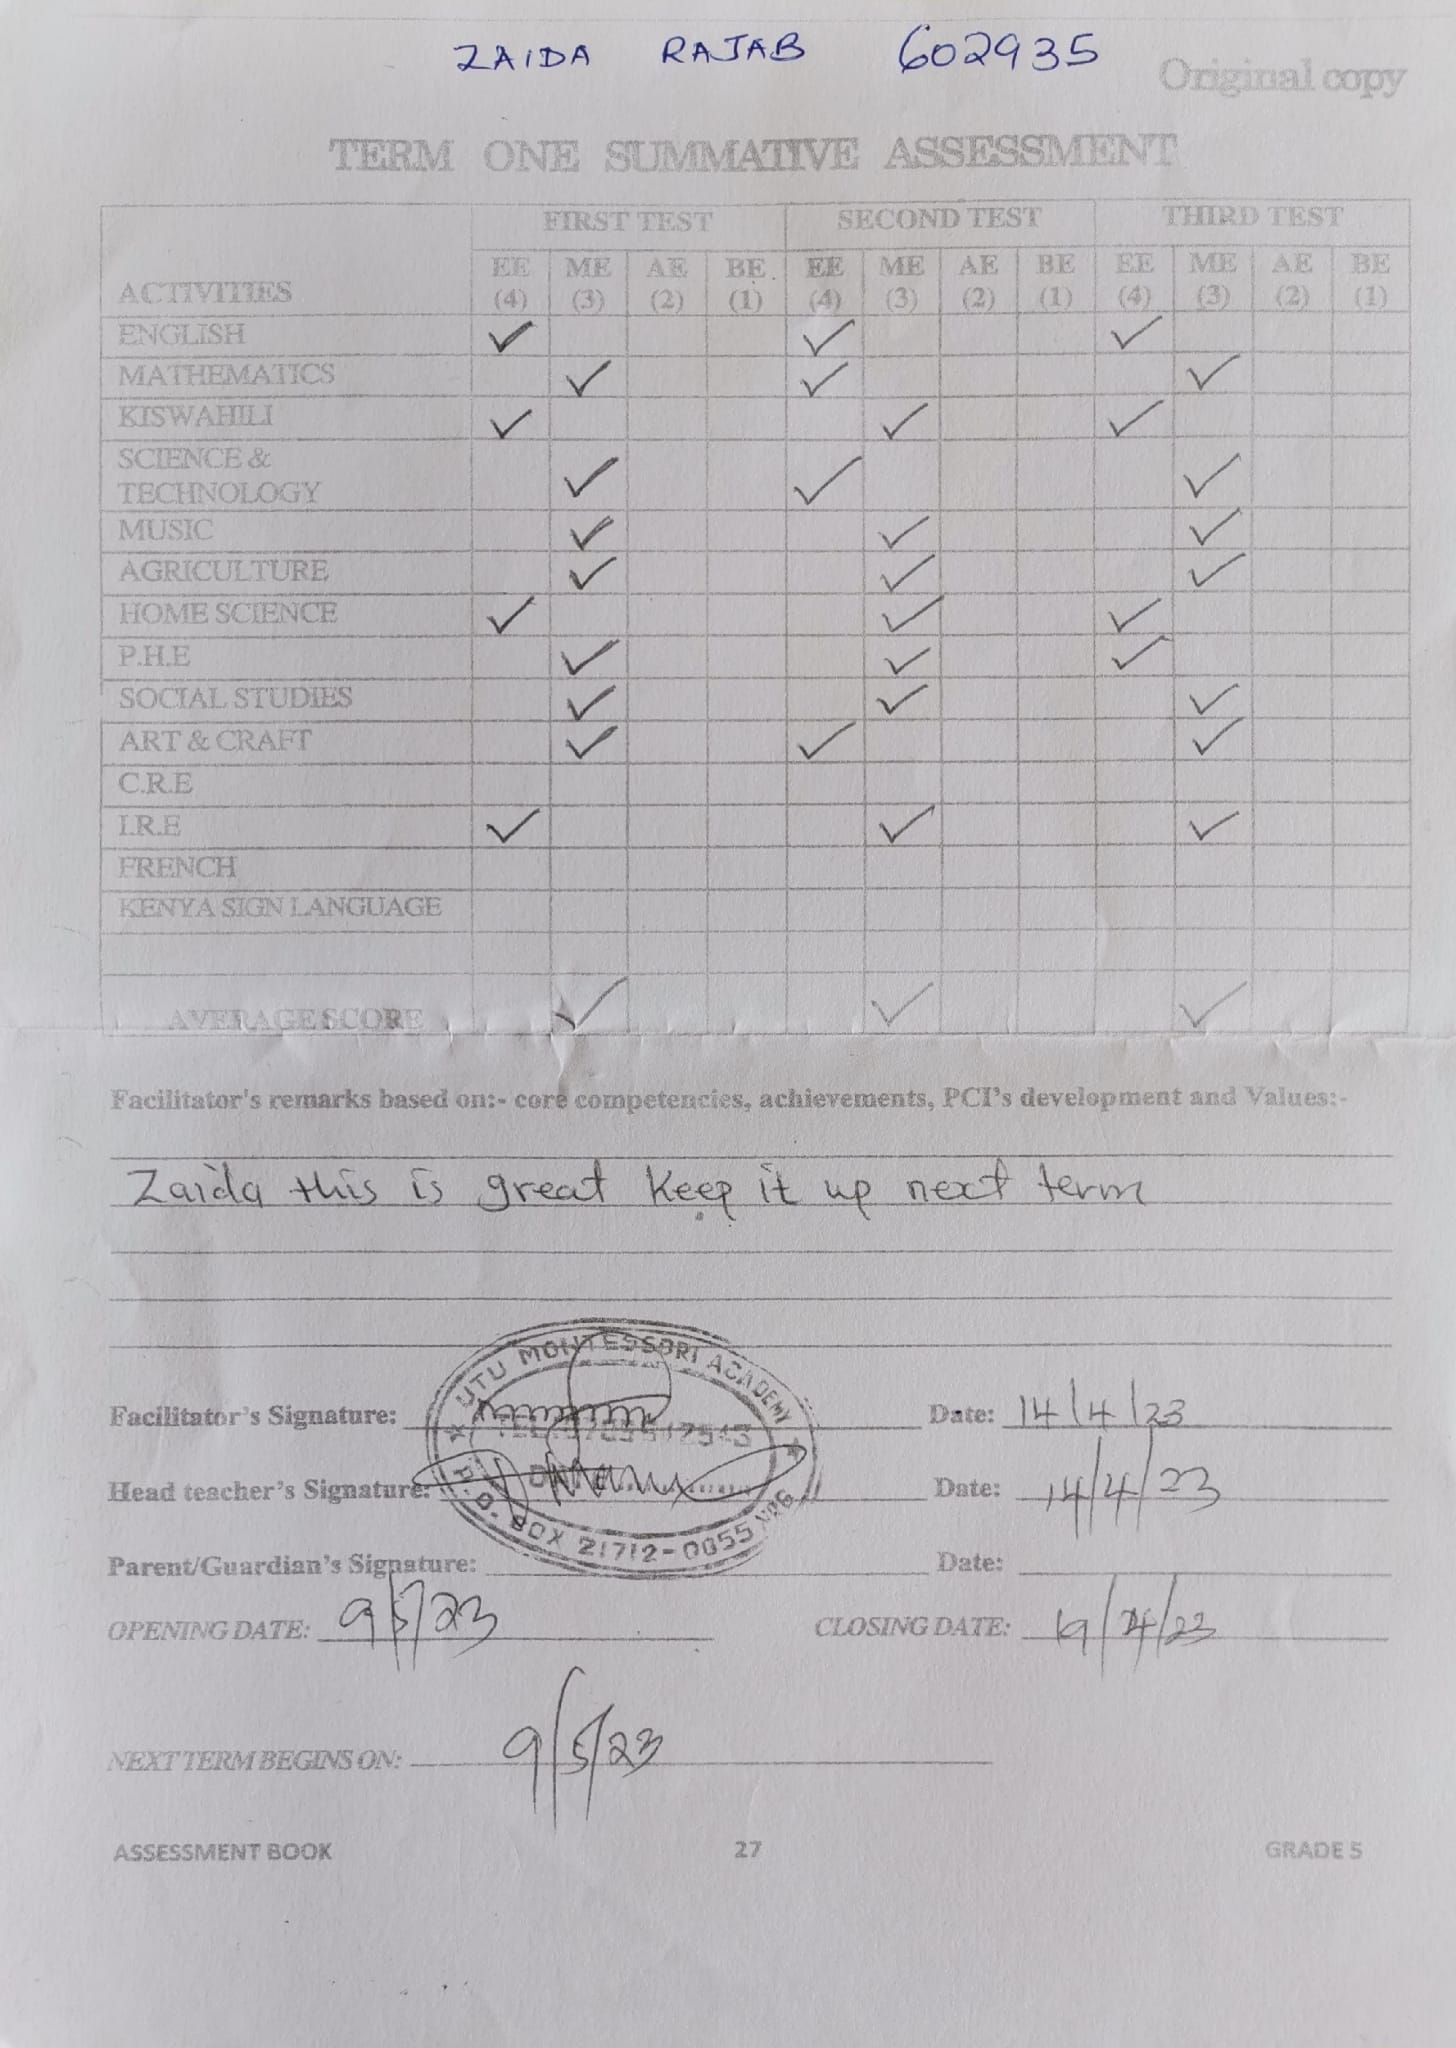 ZAIDA RAJAB 602935
Original copy
TERM ONE SUMMATIVE ASSESSMENT
FIRST TEST SECOND TEST THIRD TEST
ACTIVITIES EE (4) ME (3) AE (2) BE (1) EE (4) ME (3) AE (2) BE (1) EE (4) ME (3) AE (2) BE (1)
ENGLISH ✓ ✓ ✓
MATHEMATICS ✓ ✓ ✓
KISWAHILI ✓ ✓ ✓
SCIENCE &
TECHNOLOGY ✓ ✓ ✓
MUSIC ✓ ✓ ✓
AGRICULTURE ✓ ✓ ✓
HOME SCIENCE ✓ ✓ ✓
P.H.E ✓ ✓ ✓
SOCIAL STUDIES ✓ ✓ ✓
ART & CRAFT ✓ ✓ ✓
C.R.E
I.R.E ✓ ✓ ✓
FRENCH
KENYA SIGN LANGUAGE
AVERAGE SCORE ✓ ✓ ✓
Facilitator's remarks based on:- core competencies, achievements, PCI's development and Values:-
Zaida this is great keep it up next term
UTU MONTESSORI ACADEMY
Facilitator's Signature: Date: 14/4/23
Head teacher's Signature: Date: 14/4/23
P.O. BOX 21712-0055
Parent/Guardian's Signature: Date:
OPENING DATE: 9/5/23 CLOSING DATE: 19/4/23
NEXT TERM BEGINS ON: 9/5/23
ASSESSMENT BOOK 27 GRADE 5